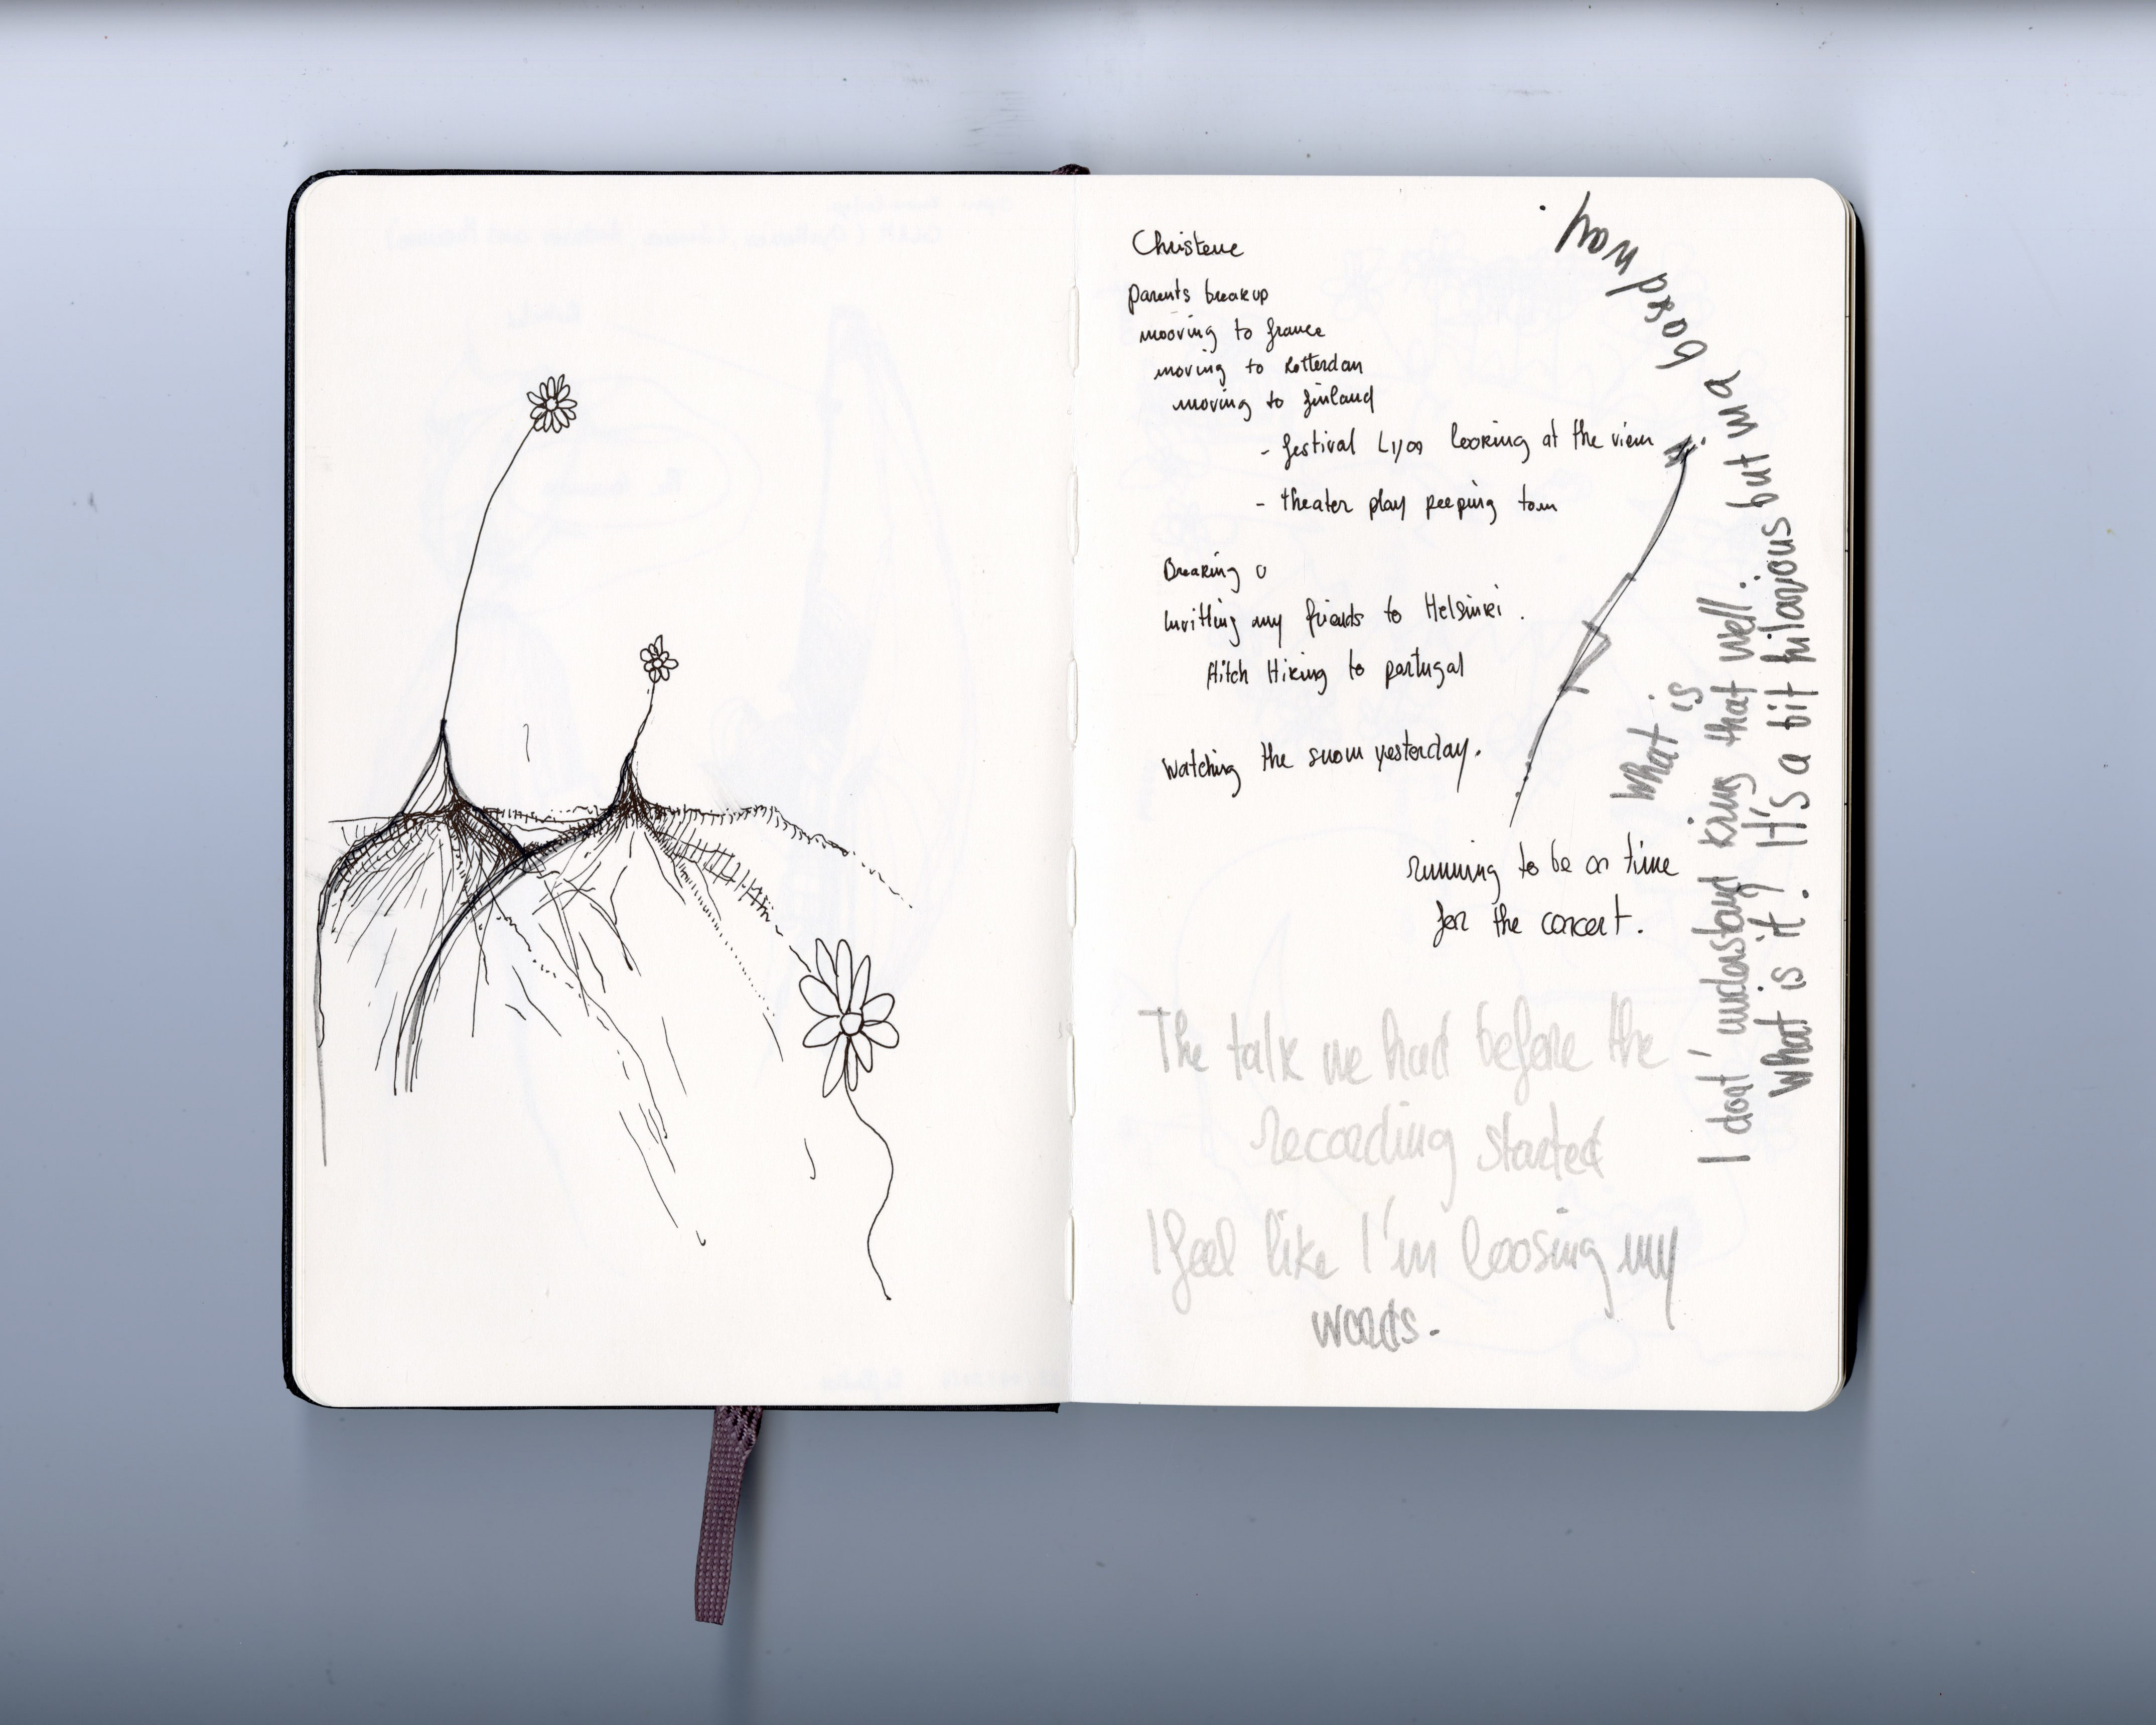 Christene
parents breakup
mooving to france
moving to Rotterdam
moving to finland
- festival Lyon looking at the view
- theater play peeping tom
Breaking U
Invitting my friends to Helsinki.
Hitch Hiking to portugal
Watching the snow yesterday.
running to be on time
for the concert.
The talk we had before the
recording started
I feel like I'm loosing my
words.
What is
I dont' understand king that well..
What is it? It's a bit hilarious but in a bored way.